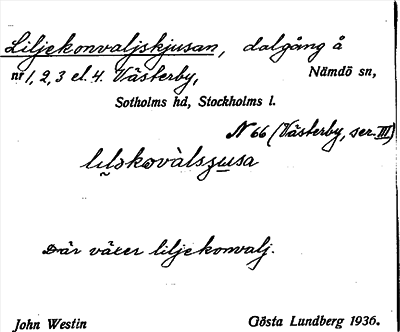 Liljekonvaljskjusan, dalgång å
nr 1, 2, 3 el. 4. Västerby, Nämdö sn,
Sotholms hd, Stockholms l.
N 66 (Västerby, ser. III)
lilskovàlsʒusa
Där växer liljekonvalj.
John Westin Gösta Lundberg 1936.